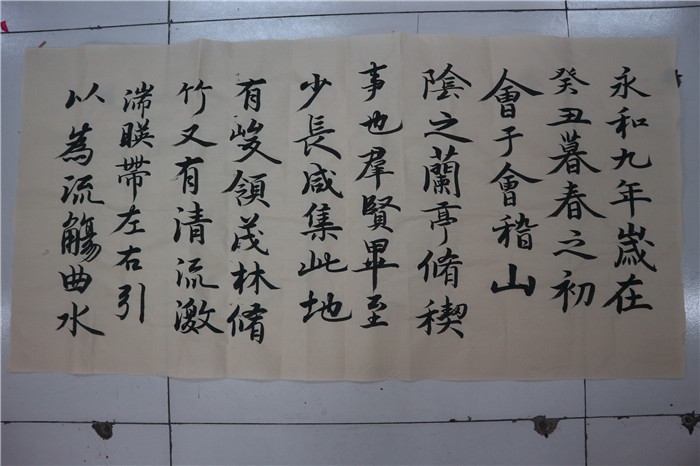 永和九年歲在
癸丑暮春之初
會于會稽山
陰之蘭亭脩稧
事也羣賢畢至
少長咸集此地
有峻領茂林脩
竹又有清流激
湍暎帶左右引
以為流觴曲水